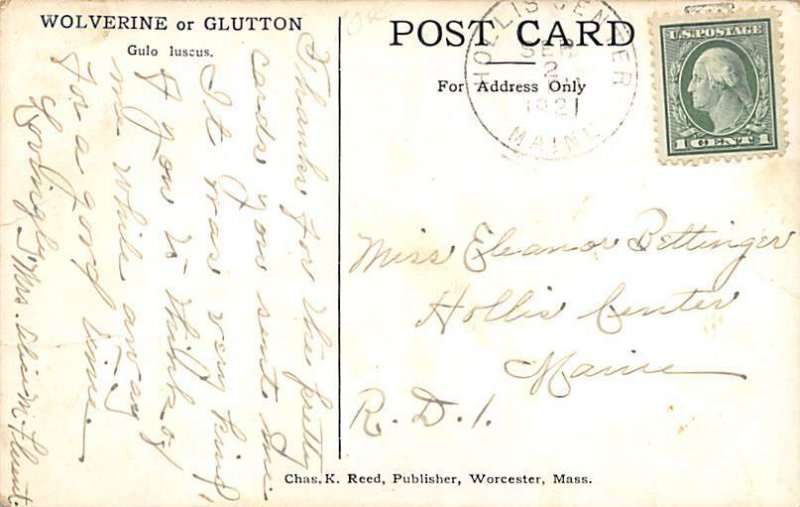 WOLVERINE or GLUTTON
Gulo luscus.
POST CARD
For Address Only
HOLLIS CENTER
SEP
2
1921
MAINE
U.S. POSTAGE
1 CENT 1
Thanks for the pretty
cards you sent me.
It was very kind
of you to think of
me while away
for a good time.
Lovingly, Mrs. Alice M.
Miss Eleanor Bettinger
Hollis Center
Maine
R.D.1.
Chas. K. Reed, Publisher, Worcester, Mass.